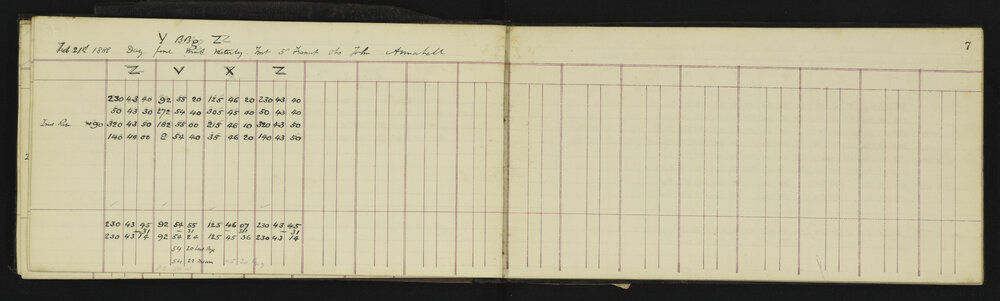 Y BBg ZZ
7
Feb 21st 1888 Day fine Wind Westerly Inst 5" Transit Obs John Annabell
Z V X Z
230 43 40 92 55 20 125 46 20 230 43 40
50 43 30 272 54 40 305 45 40 50 43 40
90 320 43 50 182 55 00 215 46 10 320 43 50
140 44 00 2 54 40 35 46 20 140 43 50
2
230 43 45 92 54 55 125 46 07 230 43 45
-31 31 -31 -31
230 43 14 92 54 24 125 45 36 230 43 14
54 20 Last Page
54 22 Mean